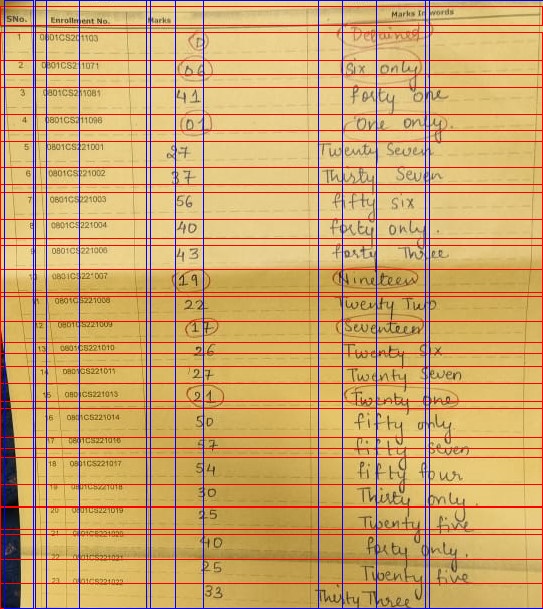 SNo. Enrollment No. Marks Marks In words
1 0801CS201103 D Detained
2 0801CS211071 06 six only
3 0801CS211081 41 forty one
4 0801CS211098 01 One only.
5 0801CS221001 27 Twenty Seven
6 0801CS221002 37 Thirty Seven
7 0801CS221003 56 fifty six
8 0801CS221004 40 forty only.
9 0801CS221006 43 forty Three
10 0801CS221007 19 Nineteen
11 0801CS221008 22 Twenty Two
12 0801CS221009 17 Seventeen
13 0801CS221010 26 Twenty Six
14 0801CS221011 27 Twenty Seven
15 0801CS221013 21 Twenty one
16 0801CS221014 50 fifty only
17 0801CS221016 57 fifty seven
18 0801CS221017 54 fifty four
19 0801CS221018 30 Thirty only.
20 0801CS221019 25 Twenty five
21 0801CS221020 40 forty only.
22 0801CS221021 25 Twenty five
23 0801CS221022 33 Thirty Three